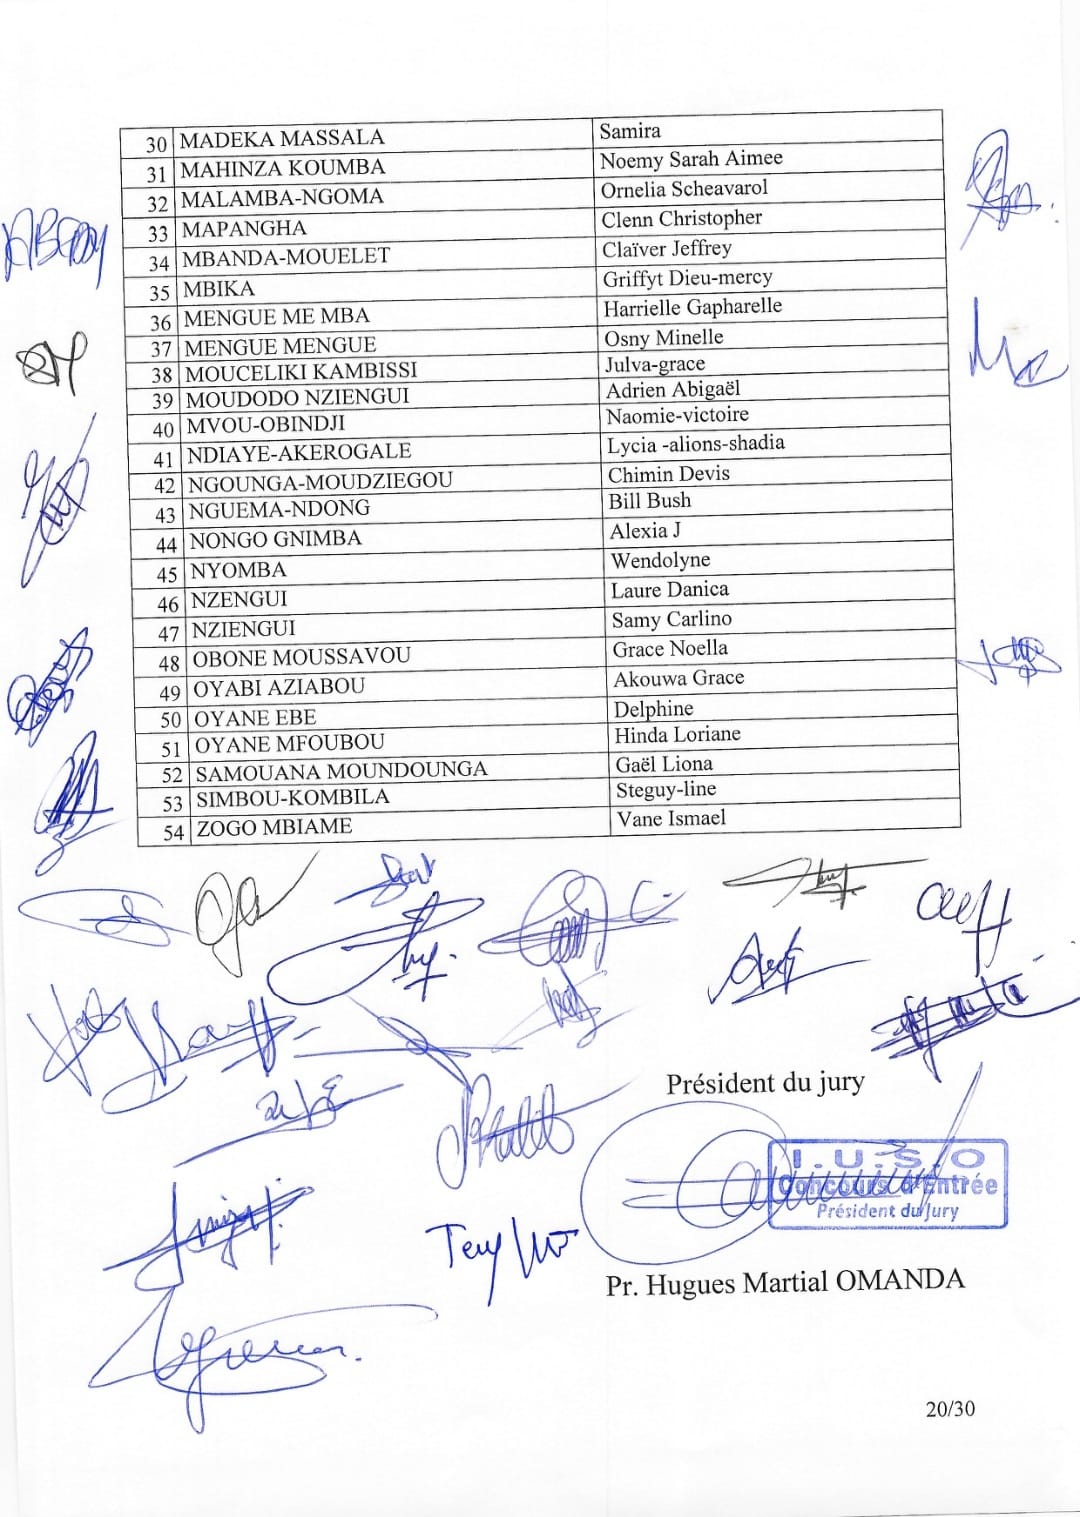 30 MADEKA MASSALA Samira
31 MAHINZA KOUMBA Noemy Sarah Aimee
32 MALAMBA-NGOMA Ornelia Scheavarol
33 MAPANGHA Clenn Christopher
34 MBANDA-MOUELET Claïver Jeffrey
35 MBIKA Griffyt Dieu-mercy
36 MENGUE ME MBA Harrielle Gapharelle
37 MENGUE MENGUE Osny Minelle
38 MOUCELIKI KAMBISSI Julva-grace
39 MOUDODO NZIENGUI Adrien Abigaël
40 MVOU-OBINDJI Naomie-victoire
41 NDIAYE-AKEROGALE Lycia -alions-shadia
42 NGOUNGA-MOUDZIEGOU Chimin Devis
43 NGUEMA-NDONG Bill Bush
44 NONGO GNIMBA Alexia J
45 NYOMBA Wendolyne
46 NZENGUI Laure Danica
47 NZIENGUI Samy Carlino
48 OBONE MOUSSAVOU Grace Noella
49 OYABI AZIABOU Akouwa Grace
50 OYANE EBE Delphine
51 OYANE MFOUBOU Hinda Loriane
52 SAMOUANA MOUNDOUNGA Gaël Liona
53 SIMBOU-KOMBILA Steguy-line
54 ZOGO MBIAME Vane Ismael
Président du jury
I.U.S.O
Concours d'Entrée
Président du Jury
Pr. Hugues Martial OMANDA
20/30